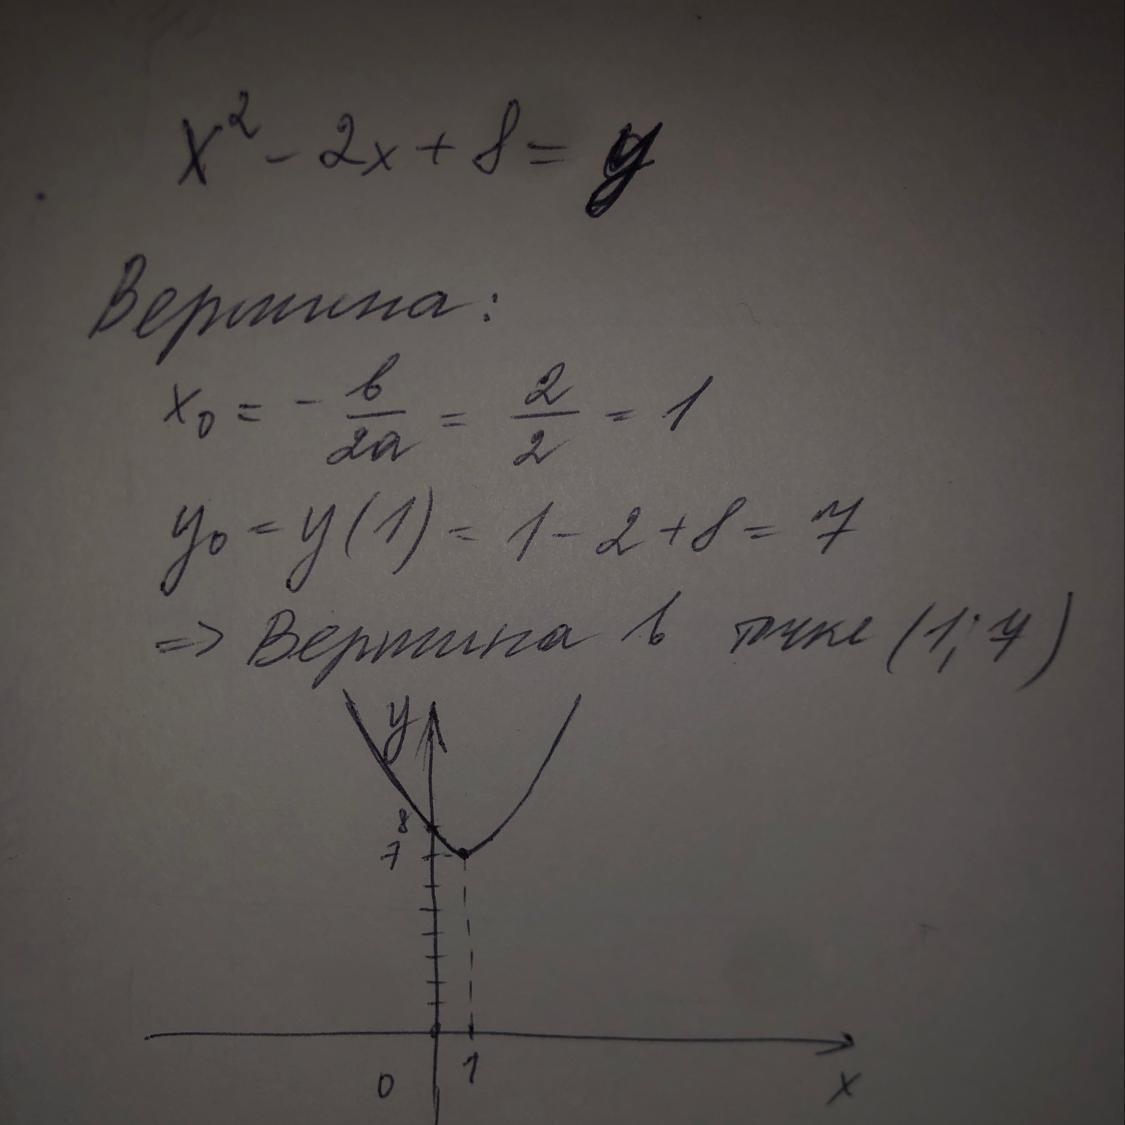 x² - 2x + 8 = y
Вершина:
x₀ = - b/2a = 2/2 = 1
y₀ = y(1) = 1 - 2 + 8 = 7
=> Вершина в точке (1; 7)
y
8
7
0 1
x